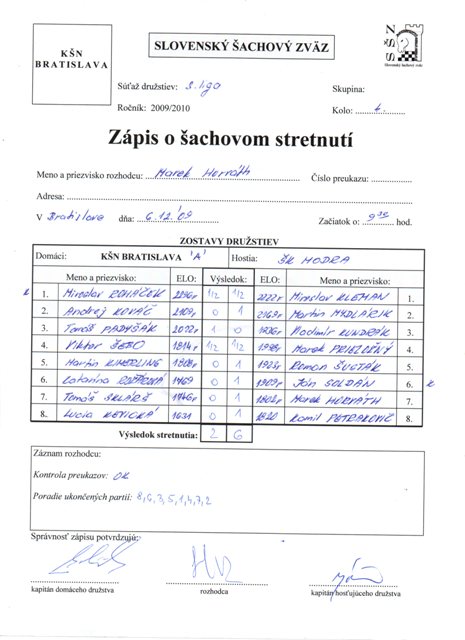 KŠN
BRATISLAVA
SLOVENSKÝ ŠACHOVÝ ZVÄZ
SŠZ
Slovenský šachový zväz
Súťaž družstiev: 3. liga
Skupina:
Ročník: 2009/2010
Kolo:
Zápis o šachovom stretnutí
Meno a priezvisko rozhodcu: Marek Horváth
Číslo preukazu:
Adresa:
V Bratislave dňa: 6.12.'09 Začiatok o: 9 30 hod.
ZOSTAVY DRUŽSTIEV
Domáci: KŠN BRATISLAVA 'A' Hostia: ŠK MODRA
Meno a priezvisko: ELO: Výsledok: ELO: Meno a priezvisko:
1. Miroslav ROHÁČEK 1/2 1/2 2222 Miroslav KLEMAN 1.
2. Andrej KOVÁČ 2109 0 1 2169 Martin MYDLÁRIK 2.
3. Tomáš PADYŠÁK 1 0 Vladimír KUNDRÁK 3.
4. Viktor ŠEBO 1814 1/2 1/2 Marek PRIELOŽNÝ 4.
5. Martin KIMERLING 1808 0 1 Roman ŠUSTÁK 5.
6. Catarina 1769 0 1 1909 Ján SOLDÁN 6.
7. Tomáš SKLÁRŠ 1746 0 1 1802 Marek HORVÁTH 7.
8. Lucia 1631 0 1 1820 Kamil PETRAKOVIČ 8.
Výsledok stretnutia: 2 6
Záznam rozhodcu:
Kontrola preukazov: OK
Poradie ukončených partií: 8,6,3,5,1,4,7,2
Správnosť zápisu potvrdzujú:
kapitán domáceho družstva rozhodca kapitán hosťujúceho družstva